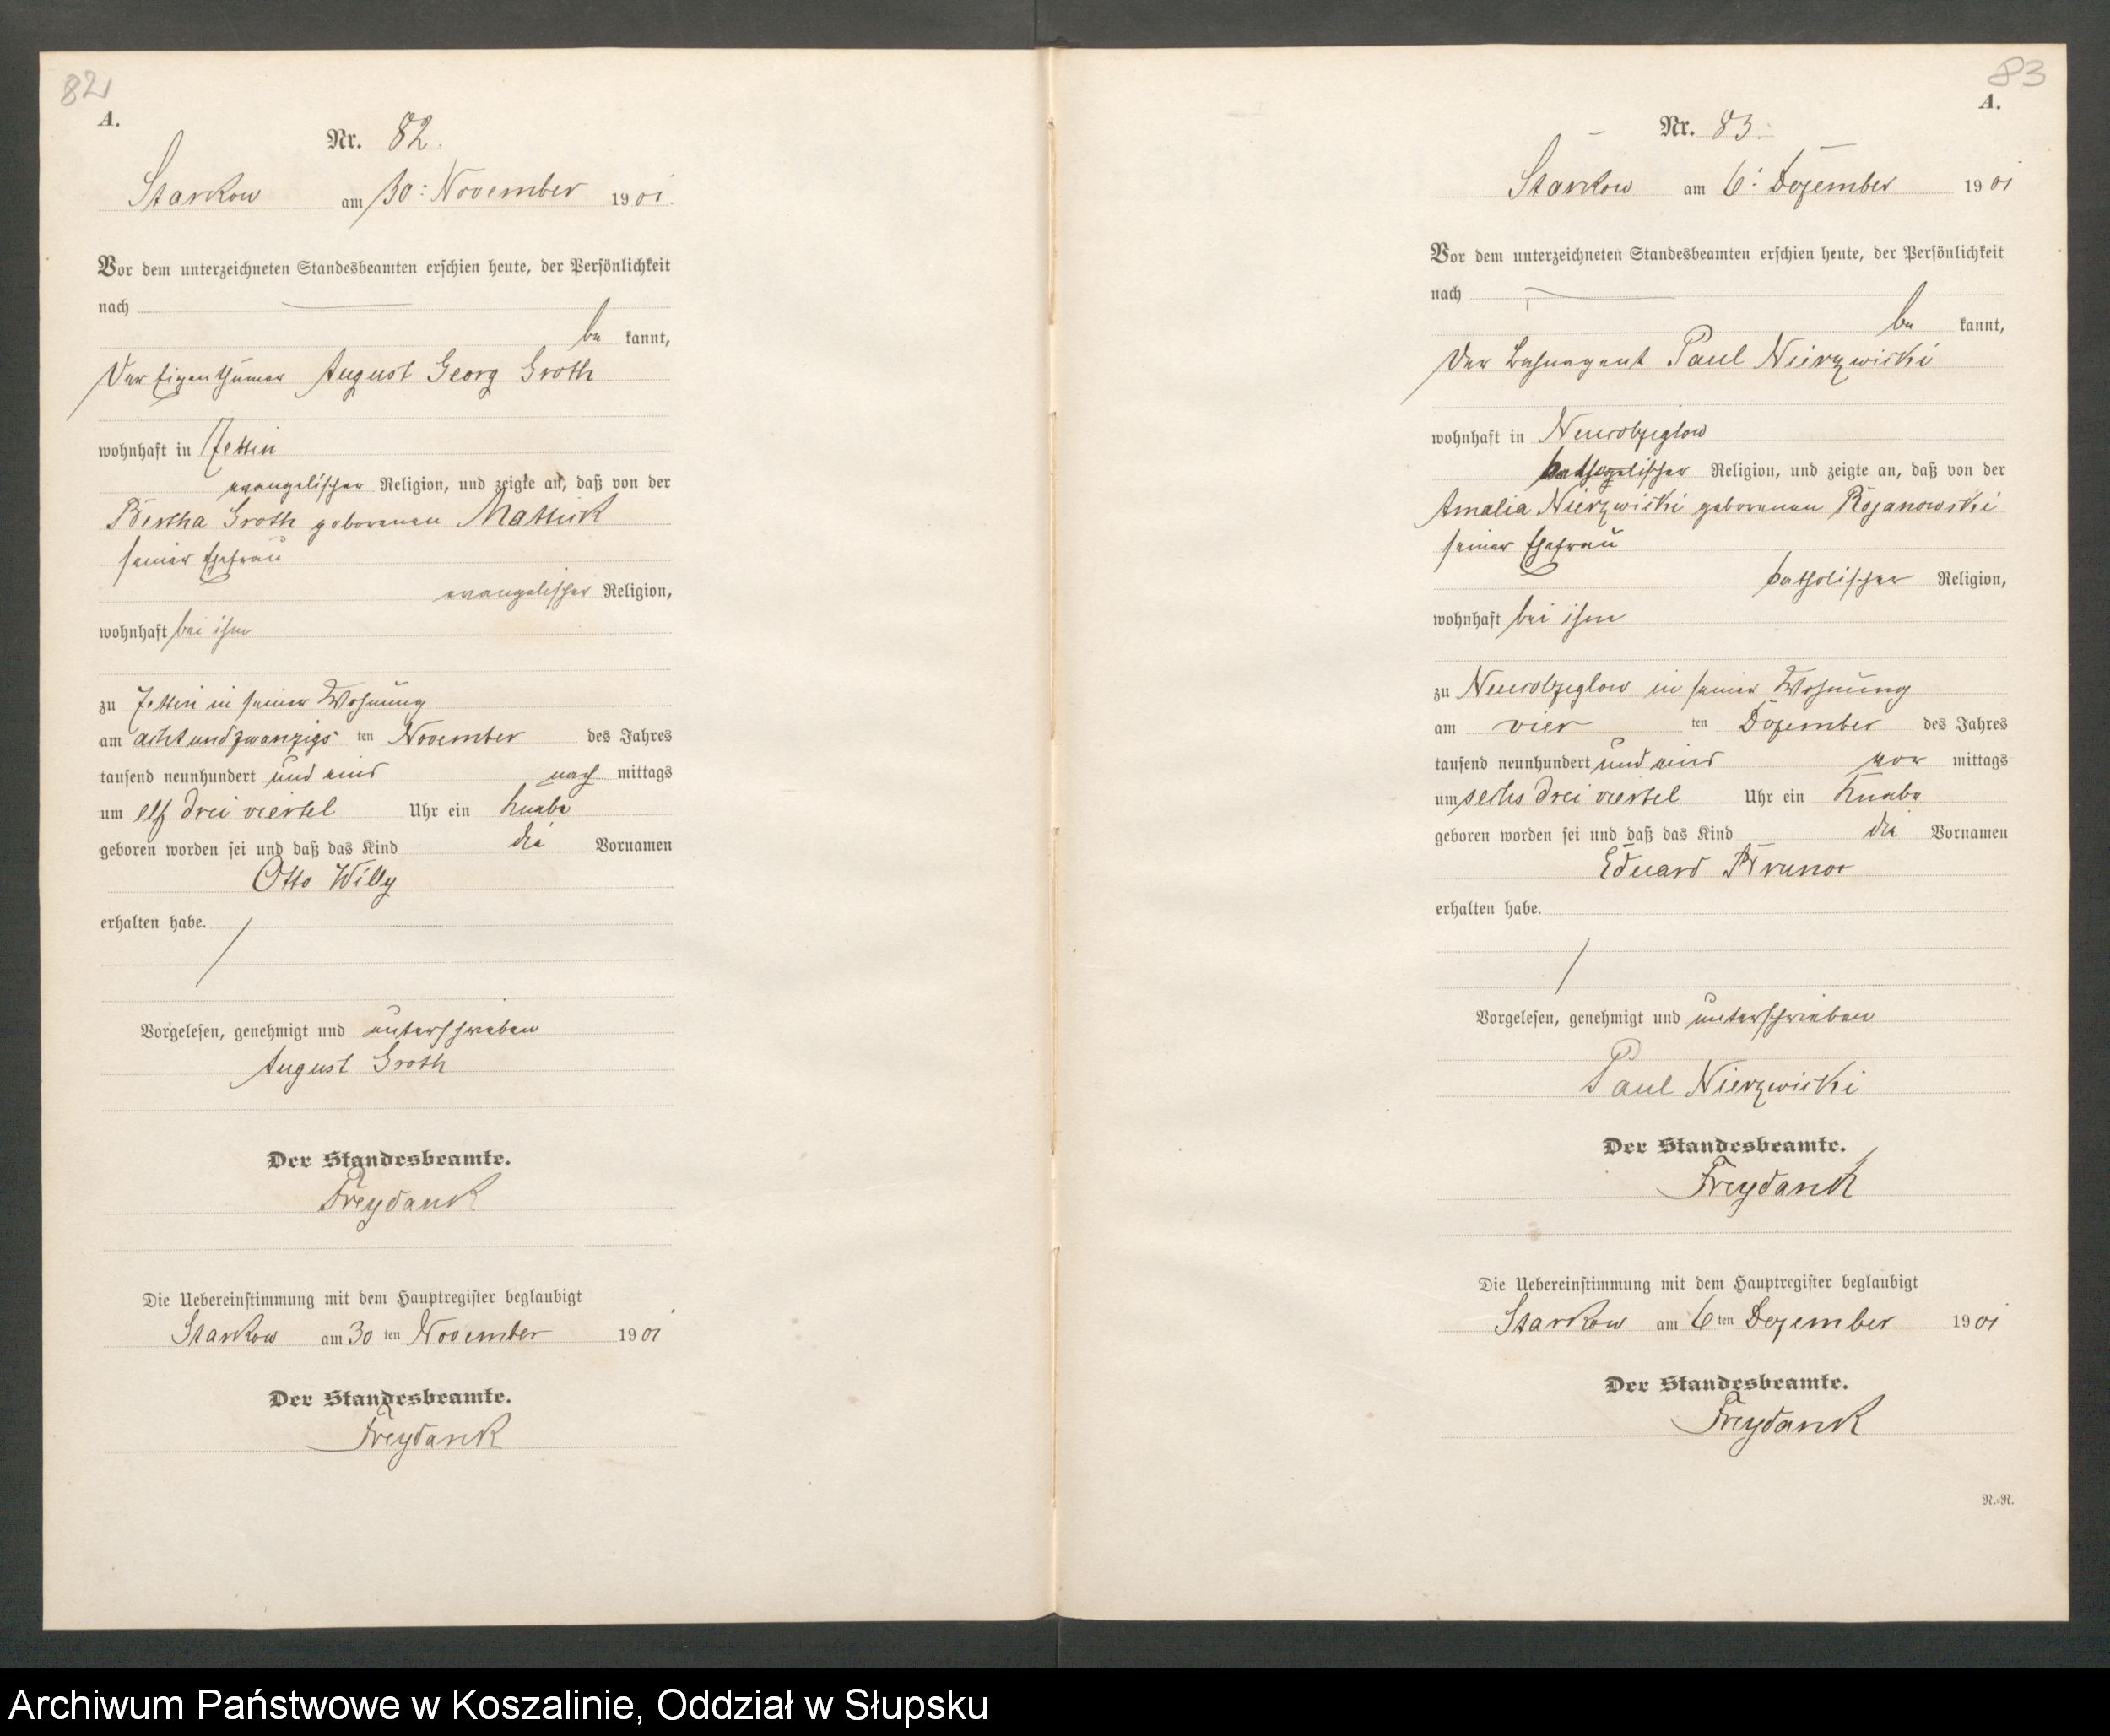 82
A.
Nr. 82.
Starkow am 30: November 1901.
Vor dem unterzeichneten Standesbeamten erschien heute, der Persönlichkeit
nach
be kannt,
Der Eigenthümer August Georg Groth
wohnhaft in Zettin
evangelischer Religion, und zeigte an, daß von der
Bertha Groth geborenen Mattick
seiner Ehefrau
evangelischer Religion,
wohnhaft bei ihm
zu Zettin in seiner Wohnung
am achtundzwanzigs ten November des Jahres
tausend neunhundert und eins nach mittags
um elf drei viertel Uhr ein Knabe
geboren worden sei und daß das Kind die Vornamen
Otto Willy
erhalten habe.
Vorgelesen, genehmigt und unterschrieben
August Groth
Der Standesbeamte.
Freydank
Die Uebereinstimmung mit dem Hauptregister beglaubigt
Starkow am 30 ten November 1901
Der Standesbeamte.
Freydank
83
A.
Nr. 83.
Starkow am 6: Dezember 1901
Vor dem unterzeichneten Standesbeamten erschien heute, der Persönlichkeit
nach
be kannt,
Der Bahnagent Paul Nierzwicki
wohnhaft in Neukolziglow
katholischer Religion, und zeigte an, daß von der
Amalia Nierzwicki geborenen Rojanowski
seiner Ehefrau
katholischer Religion,
wohnhaft bei ihm
zu Neukolziglow in seiner Wohnung
am vier ten Dezember des Jahres
tausend neunhundert und eins vor mittags
um sechs drei viertel Uhr ein Knabe
geboren worden sei und daß das Kind die Vornamen
Eduard Bruno
erhalten habe.
Vorgelesen, genehmigt und unterschrieben
Paul Nierzwicki
Der Standesbeamte.
Freydank
Die Uebereinstimmung mit dem Hauptregister beglaubigt
Starkow am 6 ten Dezember 1901
Der Standesbeamte.
Freydank
N.=N.
Archiwum Państwowe w Koszalinie, Oddział w Słupsku